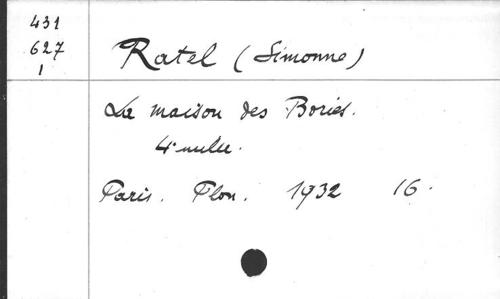 431
627
1
Ratel (Simonne)
La maison des Bories.
4e mille.
Paris. Plon. 1932 16.